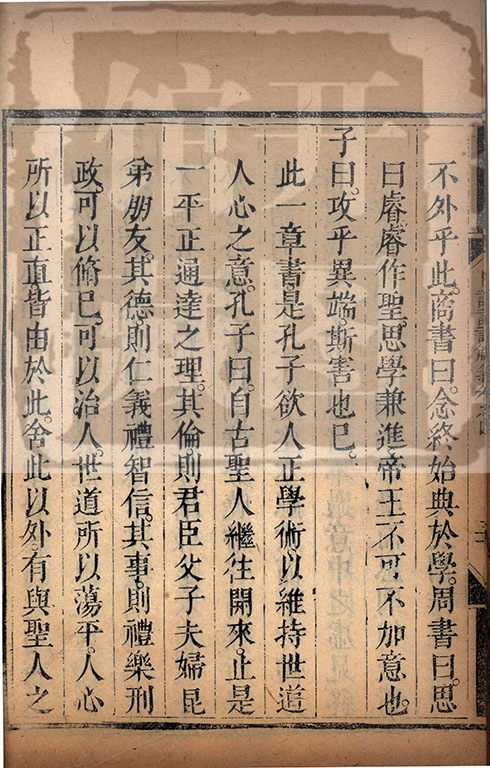 不外乎此。商書曰。念終始典於學。周書曰。思
曰睿。睿作聖。思學兼進。帝王不可不加意也。
子曰。攻乎異端。斯害也已。
此一章書。是孔子欲人正學術。以維持世道
人心之意。孔子曰。自古聖人。繼往開來。止是
一平正通達之理。其倫。則君臣父子夫婦昆
弟朋友。其德則仁義禮智信。其事。則禮樂刑
政。可以脩已。可以治人。世道所以蕩平。人心
所以正直。皆由於此。舍此以外。有與聖人之